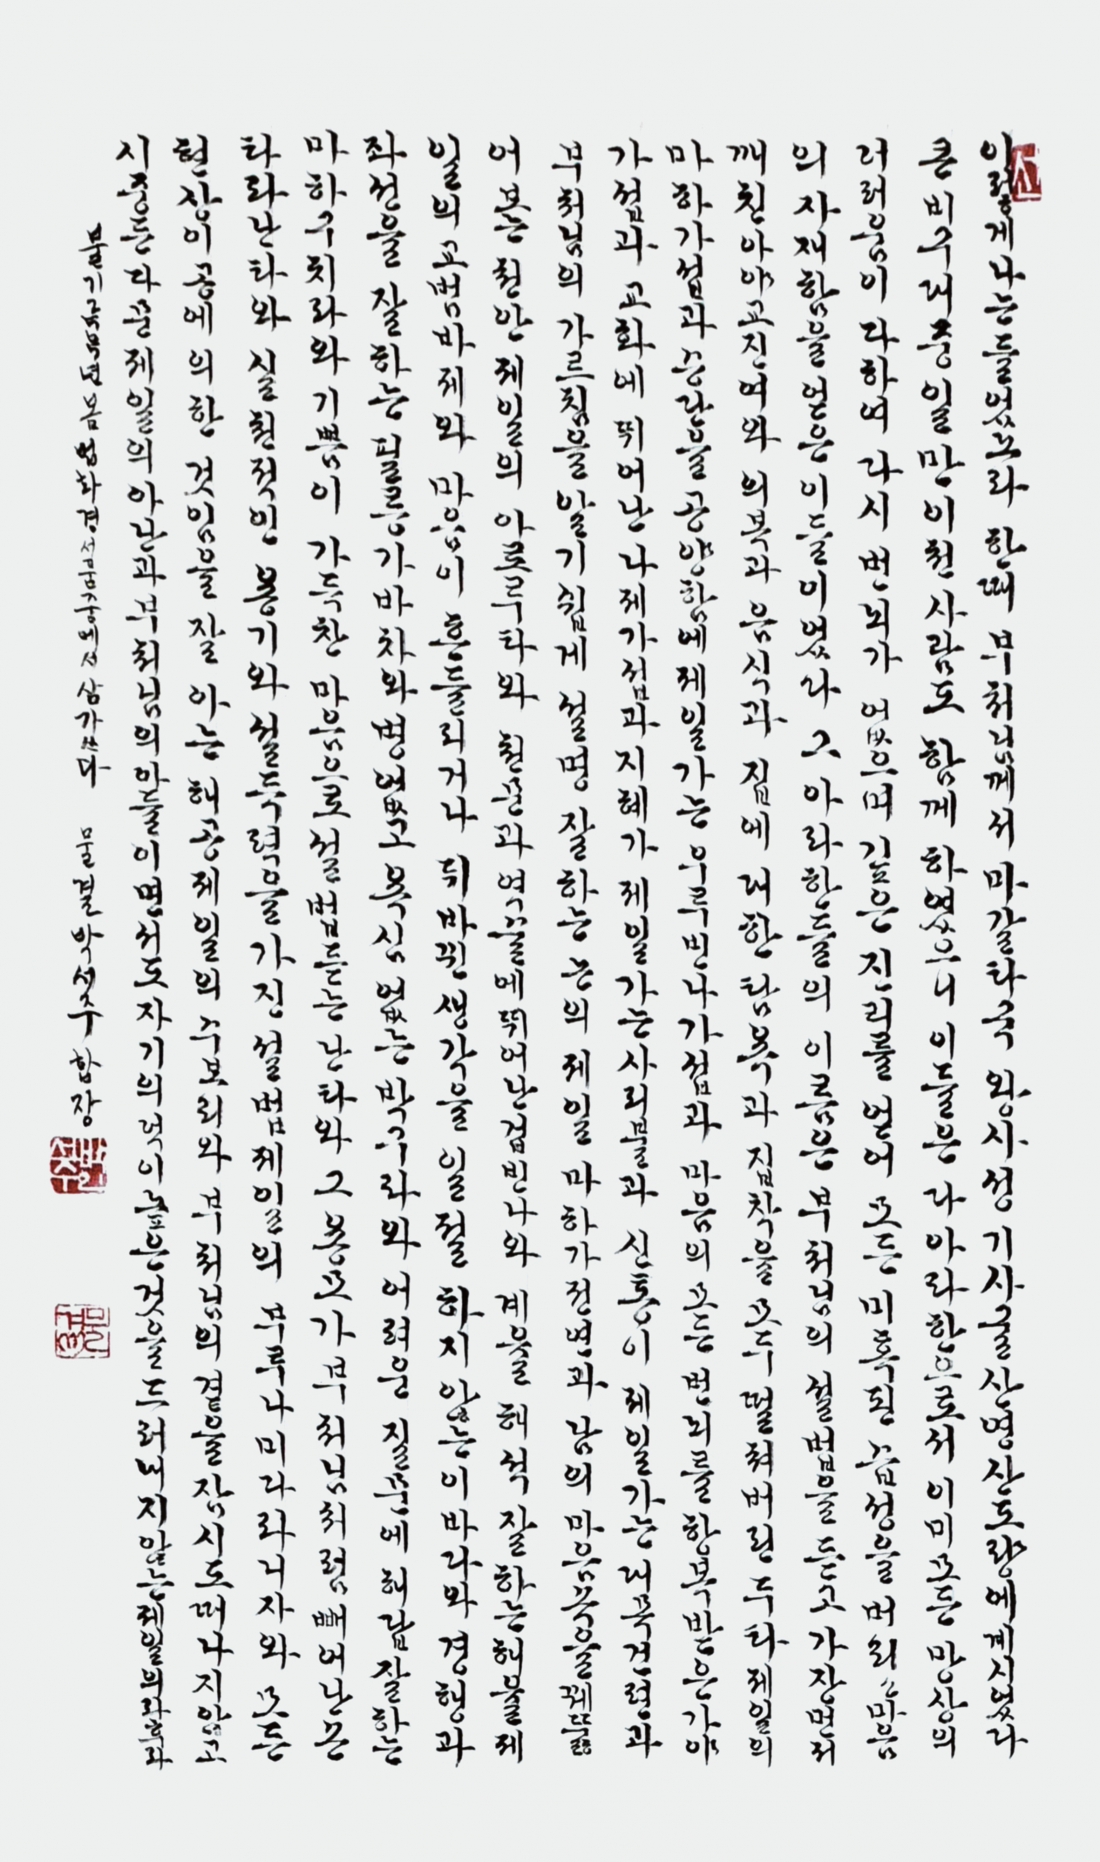 이렇게 나는 들었노라 한때 부처님께서 마갈타국 왕사성 기사굴산 영산도량에 계시었다
큰 비구 대중 일만 이천 사람도 함께 하였으니 이들은 다 아라한으로서 이미 모든 망상의
더러움이 다하여 다시 번뇌가 없으며 깊은 진리를 얻어 모든 미혹된 습성을 버리신 마음
의 자재함을 얻은 이들이었다 그 아라한들의 이름은 부처님의 설법을 듣고 가장 먼저
깨친 아야교진여와 의복과 음식과 집에 대한 탐욕과 집착을 모두 떨쳐버린 두타제일의
마하가섭과 승단을 공양함에 제일가는 우루빈나가섭과 마음의 모든 번뇌를 항복받은 가야
가섭과 교화에 뛰어난 나제가섭과 지혜가 제일가는 사리불과 신통이 제일가는 대목건련과
부처님의 가르침을 알기 쉽게 설명 잘하는 논의 제일 마하가전연과 남의 마음 뜻을 꿰뚫
어 보는 천안 제일의 아로루타와 천문과 역술에 뛰어난 겁빈나와 계율 해석 잘하는 해율제
일의 교범바제와 마음이 흔들리거나 뒤바뀐 생각을 일절 하지 않는 이바다와 경행과
좌선을 잘 하는 필릉가바차와 병없고 욕심 없는 박구라와 어려운 질문에 해답 잘하는
마하구치라와 기쁨이 가득찬 마음으로 설법 듣는 난타와 그 용모가 부처님처럼 빼어난 손
타라난타와 실천적인 용기와 설득력을 가진 설법제일의 부루나미다라니자와 모든
현상이 공에 의한 것임을 잘 아는 해공제일의 수보리와 부처님의 곁을 잠시도 떠나지 않고
시중든 다문제일의 아난과 부처님의 아들이면서도 자기의 덕이 높은 것을 드러내지 않는 제일의 라후라
불기 년 봄 법화경 서품 중에서 삼가 쓰다 물결 박세주 합장